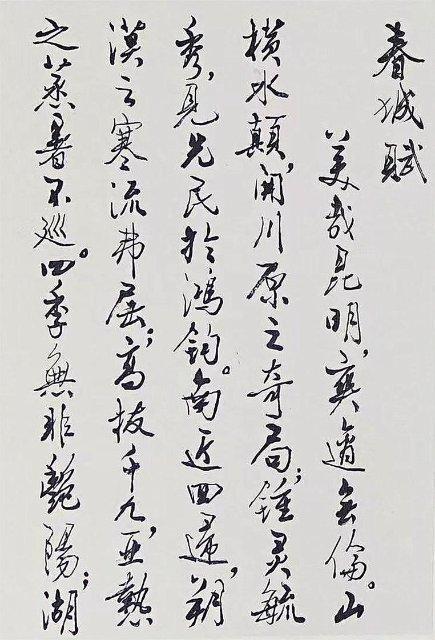 春城賦
美哉昆明，爽適無倫。山
橫水顛，開川原之奇局；鍾灵毓
秀，見先民於鴻鈞。南近回歸，朔
漠之寒流弗屆；高拔千九，亚熱
之蒸暑不巡。四季無非艷陽；湖